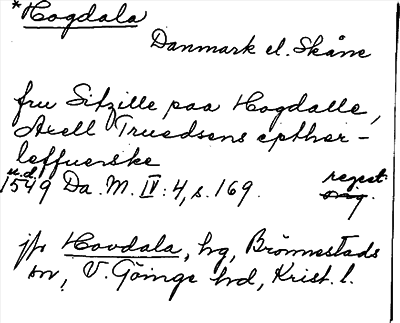 *Hogdala
Danmark el. Skåne
fru Sitzille paa Hogdalle,
Axell Truedsens epther-
leffuerske
u.d. regest.
1549 Da. M. IV:4, s. 169. orig.
jfr Hovdala, hg, Brönnestads
sn, V. Göinge hd, Krist. l.